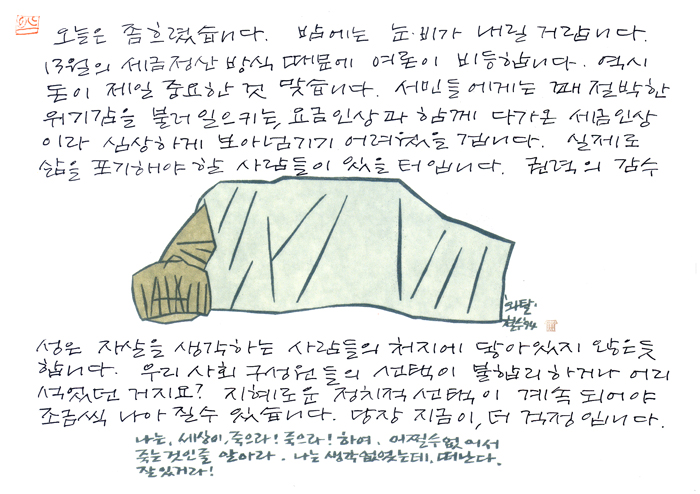 오늘은 좀 흐렸습니다. 밤에는 눈·비가 내릴 거랍니다.
13월의 세금정산 방식 때문에 여론이 비등합니다. 역시
돈이 제일 중요한 것 맞습니다. 서민들에게는 꽤 절박한
위기감을 불러 일으키는, 요금인상과 함께 다가온 세금인상
이라 심상하게 보아넘기기 어려웠을 겁니다. 실제로
삶을 포기해야 할 사람들이 있을 터입니다. 권력의 감수
'와탈'
철수 94
성은 자살을 생각하는 사람들의 처지에 닿아있지 않은듯
합니다. 우리 사회 구성원들의 선택이 불합리하거나 어리
석었던 거지요? 지혜로운 정치적 선택이 계속 되어야
조금씩 나아질수 있습니다. 당장 지금이, 더 걱정입니다.
나는, 세상이, 죽으라! 죽으라! 하여. 어쩔수없어서
죽는것인줄 알아라. 나는 생각없었는데, 떠난다.
잘있거라!